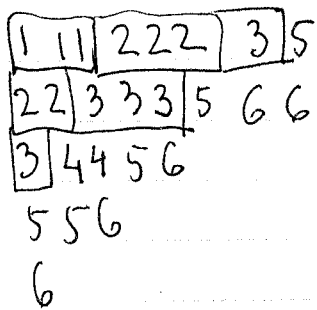 1 1 1 2 2 2 3 5
2 2 3 3 3 5 6 6
3 4 4 5 6
5 5 6
6